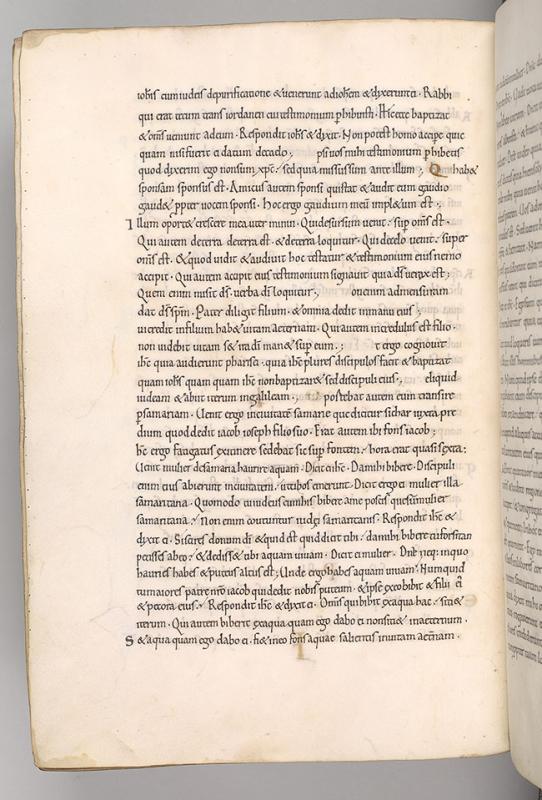 ioħis cum iudeis depurificatione & uenerunt adioħem & dyxerunt ei · Rabbi
qui erat tecum trans iordanen cui testimonium phibuisti · Ecce baptizat
& om̄s ueniunt adeum · Respondit ioħs & dyxit · Non potest homo accipe quic
quam nisi fuerit ei datum decaelo ; psi uos mihi testimonium phibetis
quod dyxerim ego non sum xp̄c : sed quia missus sum ante illum ; Q hab&
sponsam sponsus est · Amicus autem sponsi qui stat & audit eum gaudio
gaud& ppter uocem sponsi · hoc ergo gaudium meū impl&um est ;
Illum oport& crescere me autem minui · Qui desursum uenit · sup om̄s est ·
Qui autem deterra deterra est & deterra loquitur · Qui decelo uenit · super
om̄s est · & quod uidit & audiuit hoc testatur & testimonium eius nemo
accipit · Qui autem accipit eius testimonium signauit quia d̄s uerax est ;
Quem enim misit d̄s · uerba dī loquitur ; on enim admensuram
dat d̄s sp̄m · Pater diligit filium · & omnia dedit inmanu eius ;
ui credit infilium hab& uitam aeternam · Qui autem incredulus est filio ·
non uidebit uitam sed ira dī man& sup eum ; t ergo cognouit
ih̄c quia audierunt pharisei · quia ih̄c plures discipulos facit & baptizat
quam ioħs quam quam ih̄c non baptizar& sed discipuli eius ; eliquid
iudeam & abiit iterum ingalileam ; portebat autem eum transire
p samariam · Uenit ergo inciuitatē samarie que dicitur sichar iuxta pre
dium quod dedit iacob ioseph filio suo · Erat autem ibi fons iacob ;
ih̄c ergo fatigatus exitinere sedebat sic sup fontem · hora erat quasi sexta :
Uenit mulier desamaria haurire aquam · Dicit ei ih̄c · Da mihi bibere · Discipuli
enim eius abierunt inciuitatem · ut cibos emerent · Dicit ergo ei mulier illa
samaritana · Quomodo tu iudeus cum sis bibere ame poscis que sum mulier
samaritana · Non enim coutuntur iudei samaritanis · Respondit ih̄c &
dyxit ei · Si scires donum dī & quis est qui dicit tibi : da mihi bibere tu forsitan
petisses abeo : & dediss& tibi aquam uiuam · Dicit ei mulier · Dn̄e neq: inquo
hauries habes & puteus altus est ; Unde ergo habes aquam uiuam · Numquid
tu maior es patre nr̄o iacob qui dedit nobis puteum · & ipse ex eo bibit & filii ei
& pecora eius · Respondit ih̄c & dyxit ei · Om̄is qui bibit exaqua hac · siti&
iterum · Qui autem biberit exaqua quam ego dabo ei non siti& inaeternum ·
S & aqua quam ego dabo ei · fi& ineo fons aquae salientis inuitam aet̄nam ·